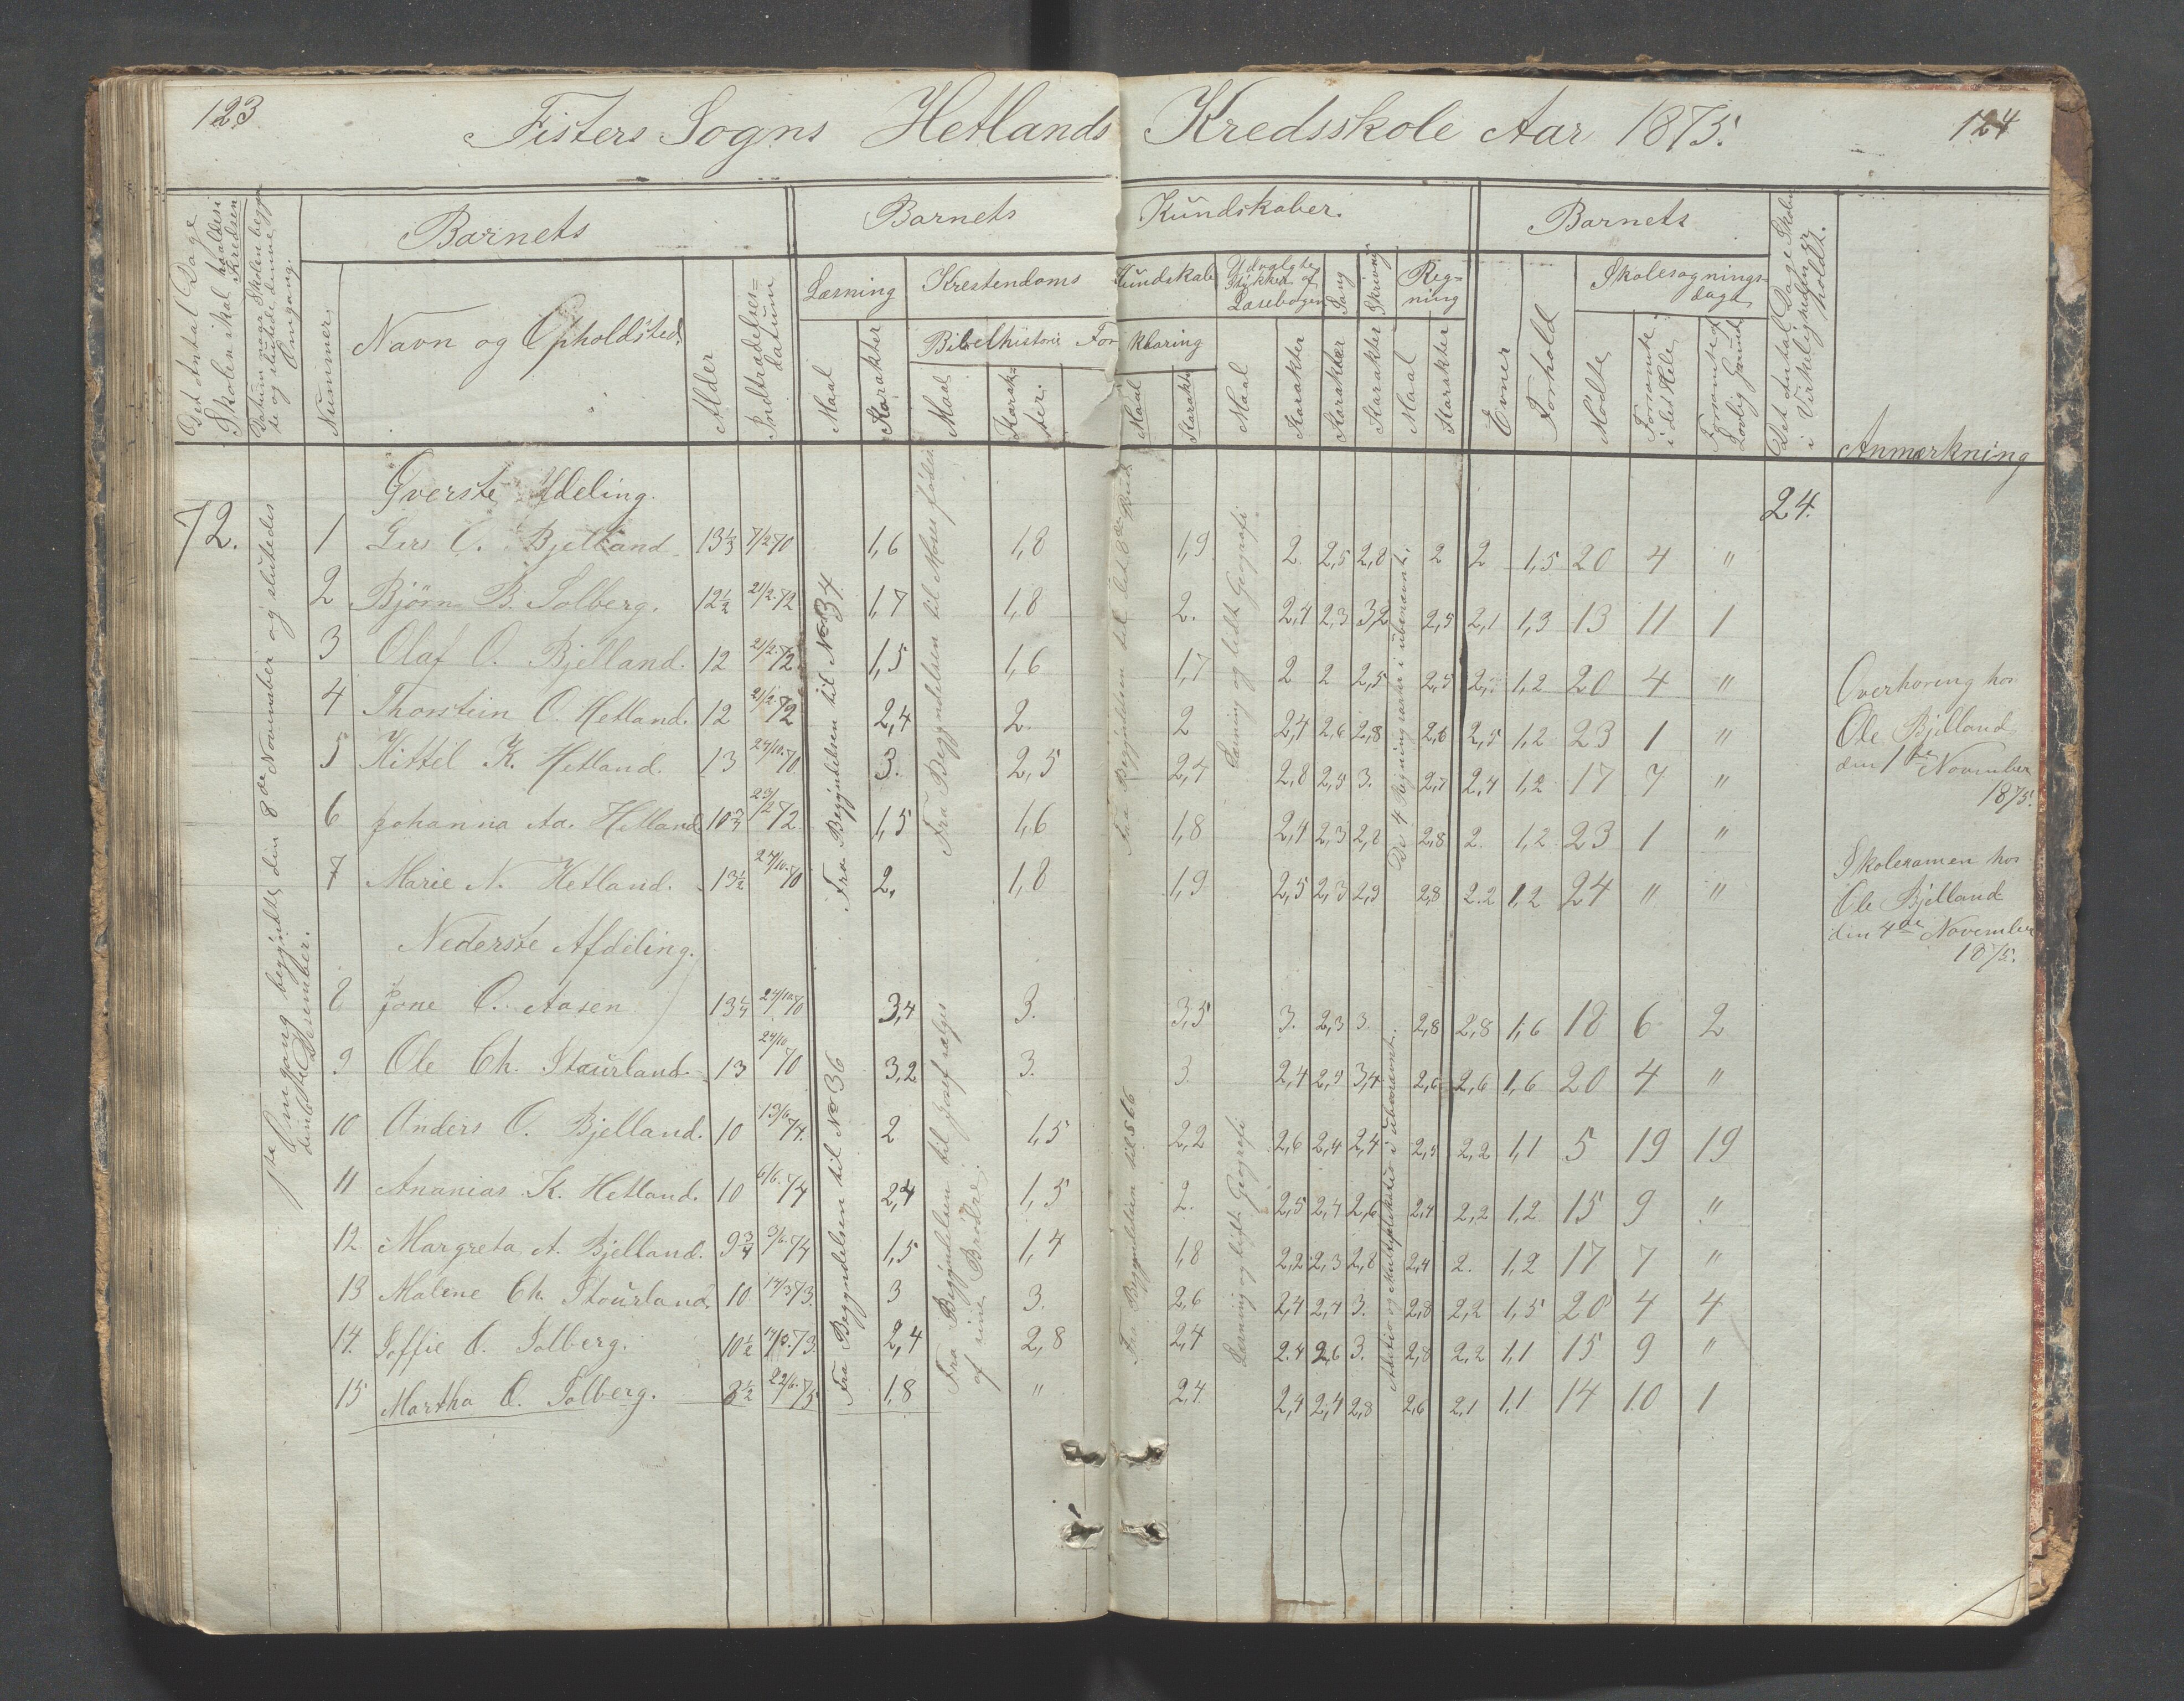 123
Fisters Sogns Hetlands Kredsskole Aar 1875.
124
Det Antal Dage Skolen skal holdes i Kredsen
Nummer
Barnets
Navn og Opholdsted.
Alder
Indtrædelses=datum
Barnets Kundskaber.
Læsning
Maal
Karakter
Krestendoms Kundskab
Bibelhistorie
Maal
Karakter.
Forklaring
Maal
Karakter
Udvalgte Stykker af Læsebogen
Maal
Karakter
Sang
Karakter
Skrivning
Karakter
Reg=ning
Maal
Karakter
Barnets
Evner
Forhold
Skolesøgnings=dage
Mödte
Forsømte i det Hele
Forsømte af Lovlig Grund
Det Antal Dage Skolen i Virkeligheden er holdt.
Anmærkning
72.
1ste Omgang begyndte den 8de November og sluttedes
Desember.
Överste Afdeling.
24.
1 Lars O. Bjelland. 13 1/3 7/2 70 1,6 1,8 1,9 2 2,5 2,8 2 2 1,5 20 4 "
2 Björn B. Solberg. 12 1/2 21/2 72 1,7 1,8 2. 2,4 2,3 3,2 2,5 2,1 1,3 13 11 1
3 Olaf O. Bjelland. 12 21/2 72 1,5 1,6 1,7 2 2 2,5 2,5 1,2 20 4 "
4 Thorstein O. Hetland. 12 21/2 72 2,4 2. 2 2,4 2,6 2,8 2,6 2,5 1,2 23 1 "
5 Kittel K. Hetland. 13 24/10 70 3. 2,5 2,4 2,8 2,4 3. 2,7 2,4 1,2 17 7 "
6 Johanna Aa. Hetland 10 3/4 23/2 72 1,5 1,6 1,8 2,4 2,3 2,8 2,8 2. 1,2 23 1 "
7 Marie N. Hetland. 13 1/2 24/10 70 2, 1,8 1,9 2,5 2,3 2,9 2,8 2.2 1,2 24 " "
Fra Begyndelsen til No 34.
Fra Begyndelsen til Moses födes
Fra Begyndelsen til det 8de Bud
Læsning og lidt Geografi.
De 4 Regningsarter i ubenævnt.
Nederste Afdeling.
8 Jone O. Aasen 13 1/4 24/10 70 3,4 3. 3,5 3. 2,3 3. 2,8 2,8 1,6 18 6 2
9 Ole Ch. Staurland. 13 24/10 70 3,2 3. 3 2,4 2,4 3,4 2,6 2,6 1,6 20 4 "
10 Anders O. Bjelland. 10 13/6 74. 2 1,5 2,2 2,6 2,4 2,4 2,5 2,2 1,1 5 19 19
11 Ananias K. Hetland. 10 6/6 74 2,4 1,5 2. 2,5 2,4 2,6 2,4 2,2 1,2 15 9 "
12 Margreta A. Bjelland. 9 3/4 3/6 74 1,5 1,4 1,8 2,2 2,3 2,8 2,4 2. 1,2 17 7 "
13 Malene Ch. Staurland. 10 14/3 73. 3 3. 2,6 2,4 2,4 3. 2,8 2,2 1,5 20 4 4
14. Soffie O. Solberg. 10 1/2 73. 2,4 2,8 2,4 2.4 2,6 3. 2,8 2,2 1,1 15 9 "
15 Martha O. Solberg. 8 1/2 22/6 75 1,8 " 2,4. 2,4 2,4 2,8 2,6 2,1 1,1 14 10 1
Fra Begyndelsen til No 36
Fra Begyndelsen til Josef sælges af sine Brödre.
Fra Begyndelsen til
Læsning og lidt Geografi
Aditio og Multiplikatio i ubenævnt.
Overhøring hos
Ole Bjelland
den 1ste November
1875.
Skolexamen hos
Ole Bjelland
den 4de November
1875.